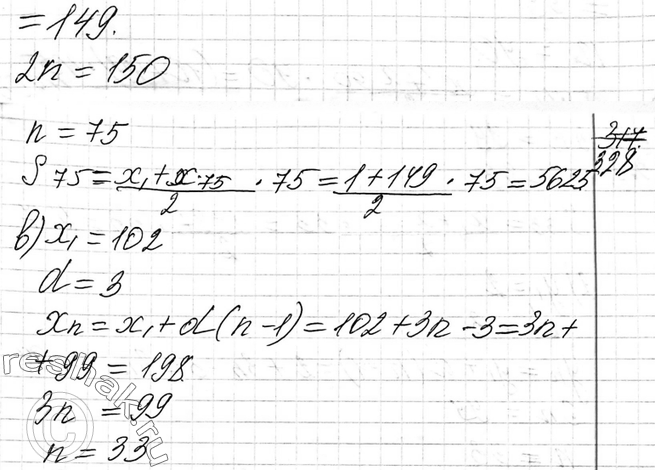 = 149.
2n = 150
n = 75
S 75 = (x₁ + x 75)/2 · 75 = (1 + 149)/2 · 75 = 5625
в) x₁ = 102
d = 3
xn = x₁ + d(n - 1) = 102 + 3n - 3 = 3n +
+ 99 = 198
3n = 99
n = 33
317.
328
reshak.ru
©